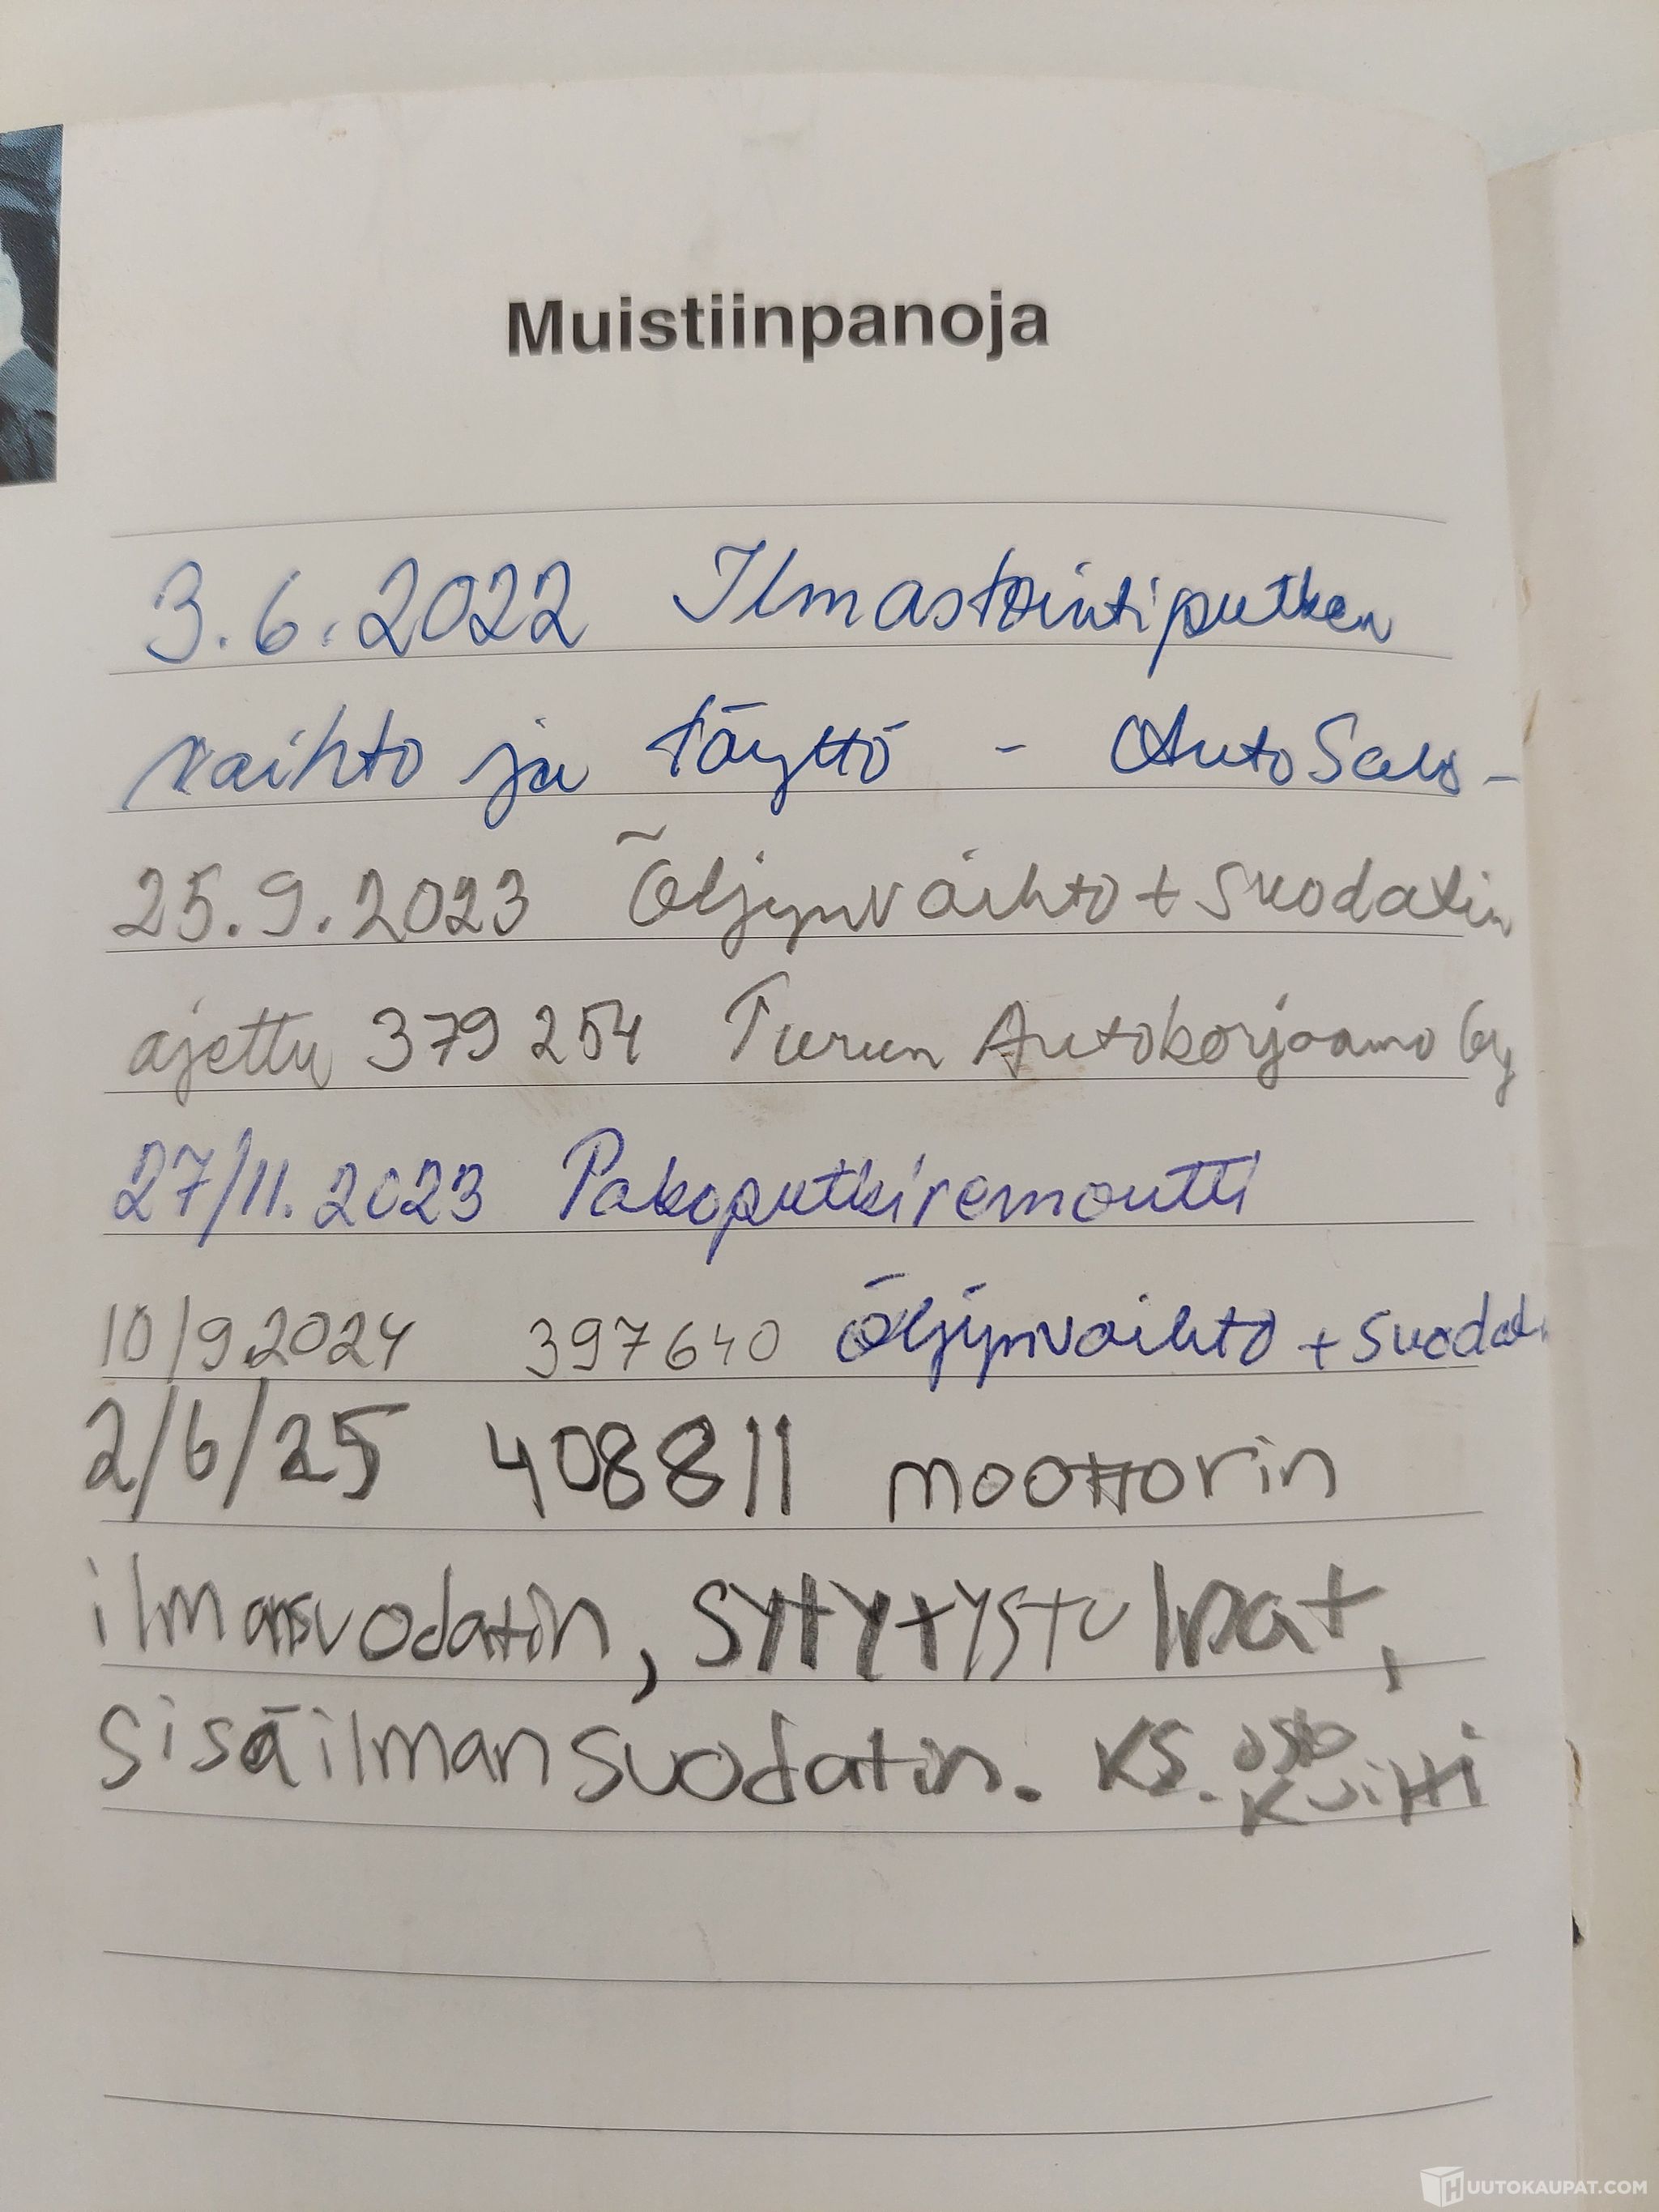 Muistiinpanoja
3.6.2022 Ilmastointiputken
vaihto ja täyttö - AutoSalo -
25.9.2023 Öljynvaihto + suodatin
ajettu 379 254 Turun Autokorjaamo Oy
27/11.2023 Pakoputkiremontti
10/9.2024 397640 Öljynvaihto + suodat
2/6/25 408811 moottorin
ilmansuodatin, sytytystulpat,
sisäilmansuodatin. KS. osto
kuitti
HUUTOKAUPAT.COM